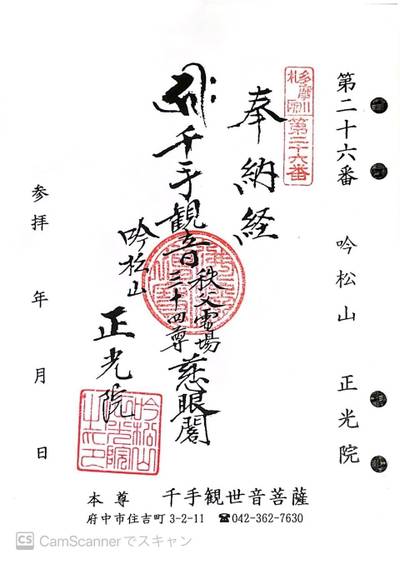 第二十六番　吟松山　正光院
多摩川
札所
第二十六番
奉納経
千手観音
秩父霊場
三十四尊
慈眼閣
吟松山
正光院
吟松山
正光院
之印
参拝　年　月　日
本尊　千手観世音菩薩
府中市住吉町 3-2-11　☎042-362-7630
CS CamScannerでスキャン